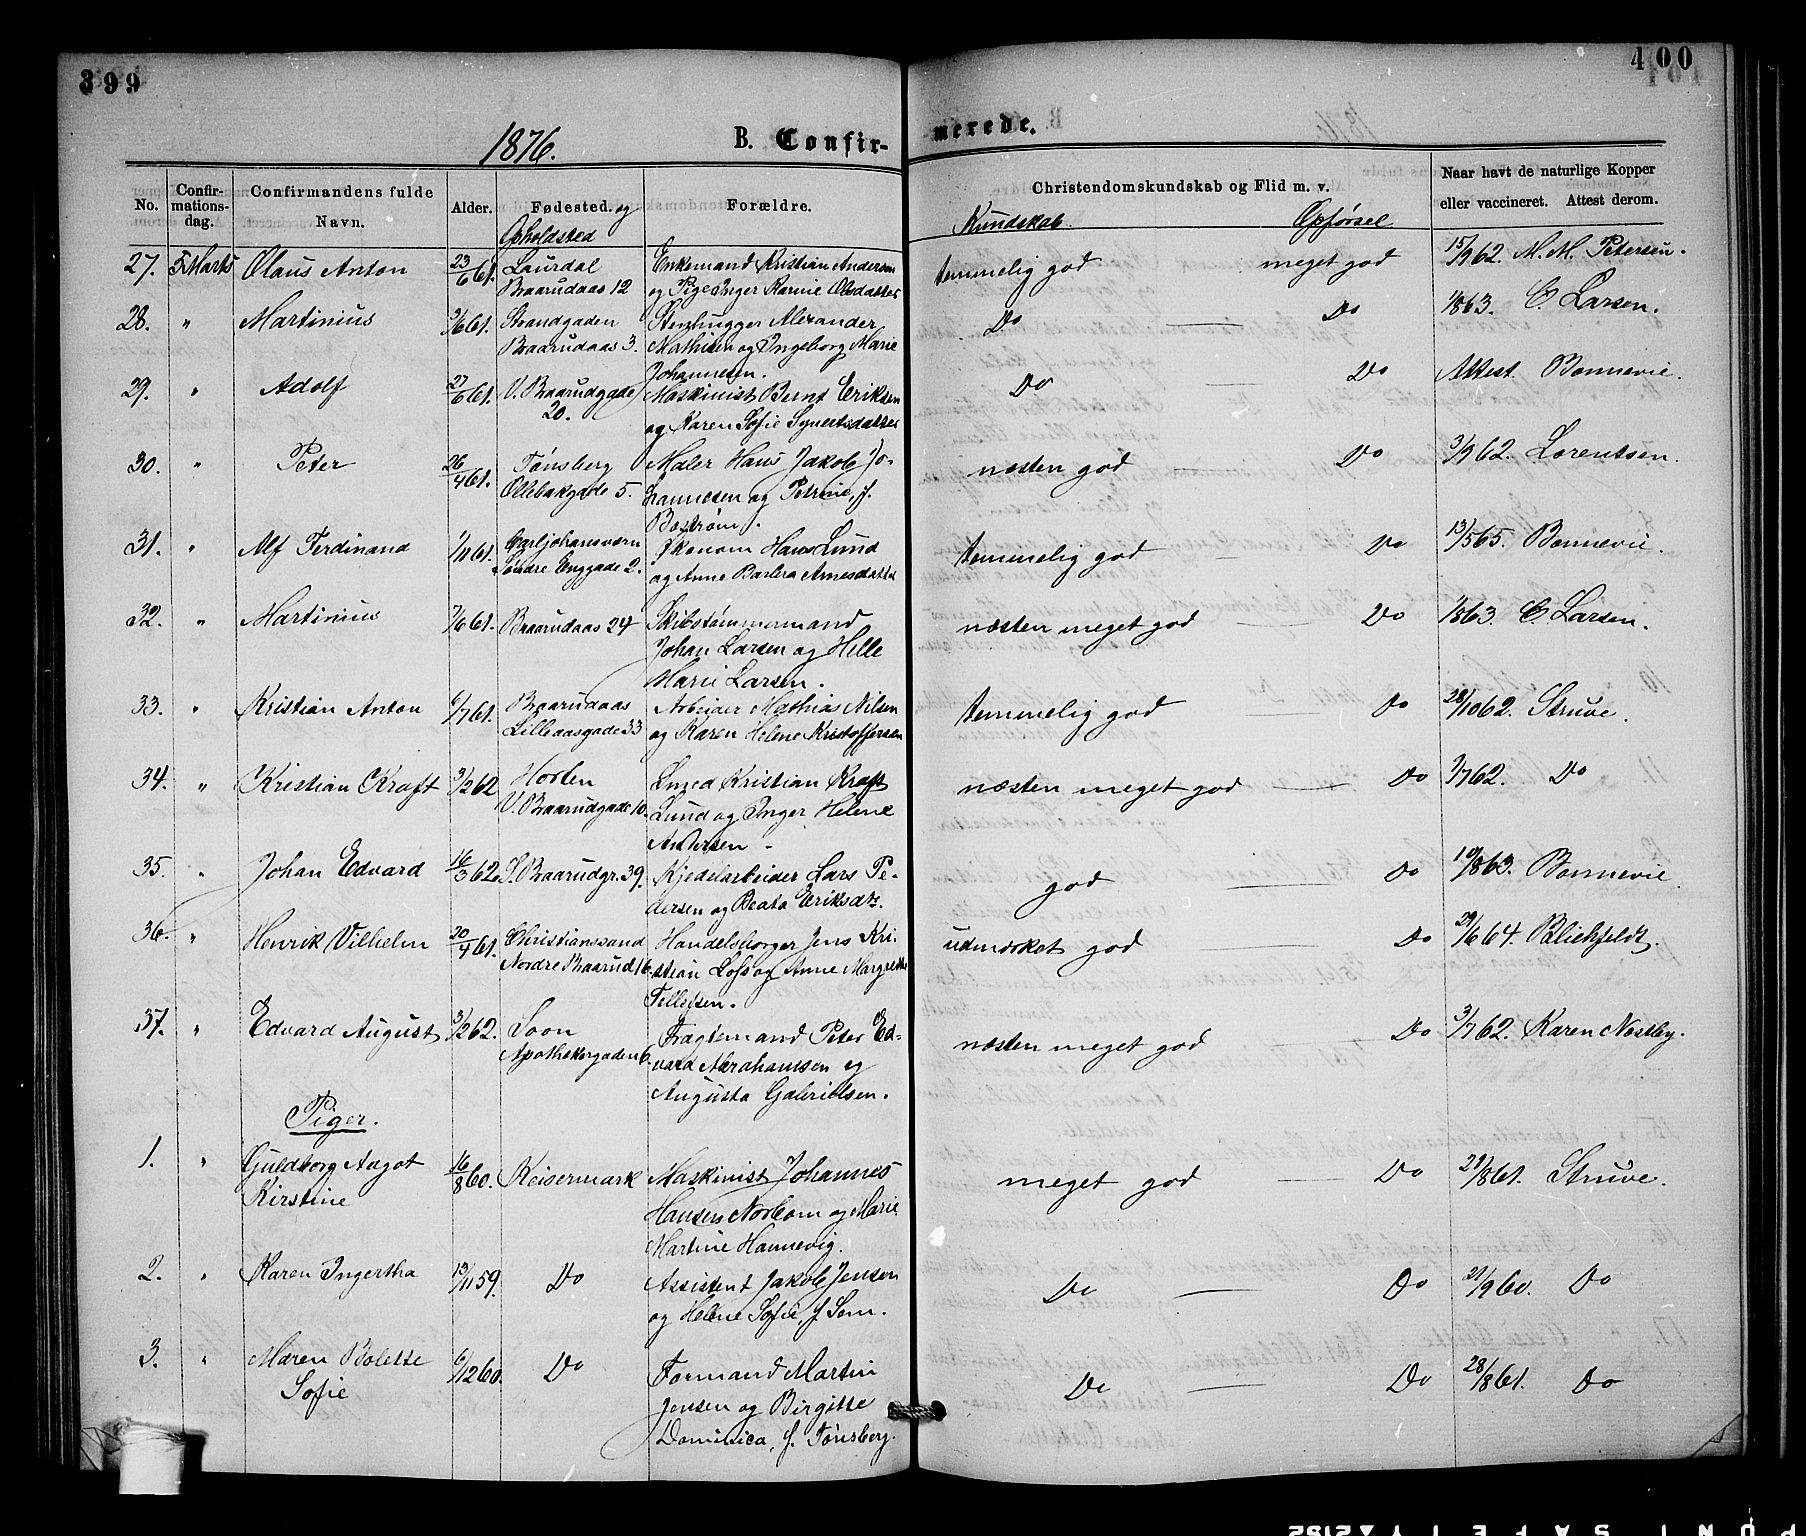 399
400
1876.
B. Confir-
merede.
No.
Confir-
mations-
dag.
Confirmandens fulde
Navn.
Alder.
Fødested. og
Opholdsted
Forældre.
Christendomskundskab og Flid m. v.
Kundskab. Opførsel
Naar havt de naturlige Kopper
eller vaccineret. Attest derom.
27. 5 Marts Olaus Anton 23/6 61. Laurdal Enkemand Kristian Andersen temmelig god meget god 15/9 62. M. M. Petersen.
Baarudaas 12 og Pige Inger Karine Olsdatter
28. " Martinius 3/6 61. Strandgaden Stenhugger Alexander Do — Do 1/8 63. C. Larsen.
Baarudaas 3. Mathisen og Ingeborg Marie
Johannesen.
29. " Adolf 27/6 61. V. Baarudgade Maskinist Bernt Eriksen Do — Do Attest. Bonnevie.
20. og Karen Sofie Syvertsdatter
30. " Peter 26/4 61. Tønsberg Maler Hans Jakob Jo- næsten god — Do 3/9 62. Lorentsen.
Ollebakgade 5. hannesen og Petrine, f.
Bostrøm.
31. " Alf Ferdinand 1/11 61. Carljohansværn Økonom Hans Lund temmelig god — Do 13/5 65. Bonnevie.
Søndre Enggade 2. og Anne Barbera Arnesdatter
32. " Martinius 7/6 61. Baarudaas 24 Skibstømmermand næsten meget god — Do 1/8 63. C. Larsen.
Johan Larsen og Helle
Marie Larsen.
33. " Kristian Anton 6/7 61. Baarudaas Arbeider Mathias Nilsen temmelig god — Do 28/10 62. Struve.
Lilleaasgade 33 og Karen Helene Kristoffersen
34. " Kristian Kraft 3/2 62 Horten Smed Kristian Kraft næsten meget god — Do 7/7 62. Do
V. Baarudgade 10. Lund og Inger Helene
Andersen
35. " Johan Edvard 16/3 62. S. Baarudgr. 39. Kjedelarbeider Lars Pe- god — Do 19/8 63. Bonnevie.
dersen og Beata Eriksdtr.
36. " Henrik Vilhelm 20/4 61. Christianssand Handelsborger Jens Kri- udmærket god Do 29/6 64. Blichfeldt.
Nordre Baarud 16. stian Lofs og Anne Margrethe
Tellefsen.
37. " Edvard August 3/2 62. Soon Fragtemand Peter Ed- næsten meget god — Do 3/7 62. Karen Næstby.
Apothekergaden 6. vard Abrahamsen og
Augusta Gabrielsen.
Piger.
1. " Guldborg Aagot 16/8 60. Keisermark Maskinist Johannes meget god — Do 21/8 61. Struve.
Kirstine Hansen Norbom og Marie
Martine Hannevig.
2. " Karen Ingertha 13/11 59. Do Assistent Jakob Jensen Do — Do 21/9 60. Do
og Helene Sofie, f. Sem.
3. " Maren Bolette 6/12 60. Do Formand Martin Do — Do 28/8 61. Do
Sofie Jensen og Birgitte
Dominica, f. Tønsberg.